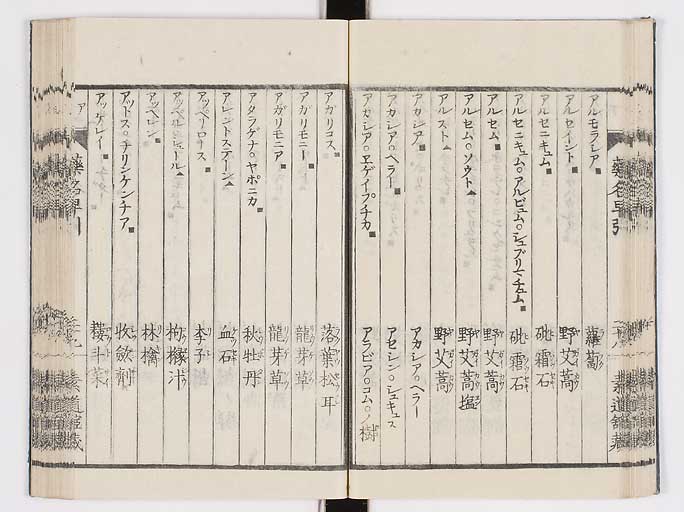 アルモラシア 蘿蔔
アルセイント 野艾蒿
アルセニキュム 砒霜石
アルセニキュム○アルビュム○シュブリマチュム 砒霜石
アルセム 野艾蒿
アルセム○ソウト 野艾蒿塩
アルスト 野艾蒿
アカシア アカシア○ヘラー
アカシア○ヘラー アセシン○シュキュス
アカシア○ヱゲイプチカ アラビア○コム○ノ樹
アガリコス 落葉松耳
アガリモニー 龍芽草
アガリモニア 龍芽草
アタラゲナ○ヤポニカ 秋牡丹
アレントステーン 血石
アッペーロナス 李子
林檎
アットス○チリンケンチア 收斂剤
アッケレイ 耬斗菜
藥名早引